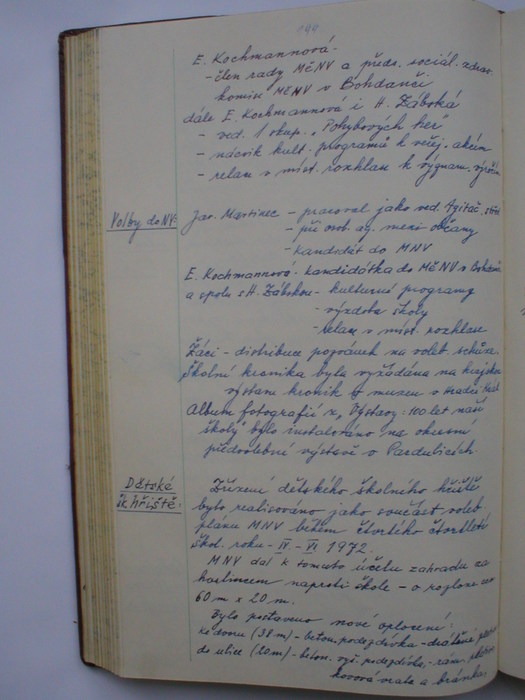 190
E. Kochmannová -
- člen rady MěNV a předs. sociál. zdrav.
komise MĚNV v Bohdanči
dále E. Kochmannová i H. Záboká
- ved. 1 skup. "Pohybových her"
- nácvik kult. programů k veřej. akcím
- relace v míst. rozhlase k význam. výročím
Volby do NV: Jar. Martinec - pracoval jako ved. Agitač. střed.
- při osob. ag. mezi občany
- kandidát do MNV
E. Kochmannová - kandidátka do MěNV v
a spolu s H. Zábokou - kulturné programy
- výzdoba školy
- relace v míst. rozhlase
Žáci - distribuce pozvánek na voleb. schůze.
Školní kronika byla vyžádána na krajskou
výstavu kronik v museu v Hradci Král.
Album fotografií z "Výstavy: 100 let naší
školy" bylo instalováno na okresní
předvolební výstavě v Pardubicích
Dětské
šk. hřiště: Zřízení dětského školního hřiště
bylo realisováno jako součást voleb.
plánu MNV během čtvrtého čtvrtletí
škol. roku - IV - VI 1972.
MNV dal k tomuto účelu zahradu za
hostincem naproti škole - o rozloze
60 m x 20 m.
Bylo postaveno nové oplocení:
ke dvoru (38 m) - beton. podezdívka - drátěné
do ulice (20 m) - beton. vyš. podezdívka, - rám.
kovová vrata a branka.